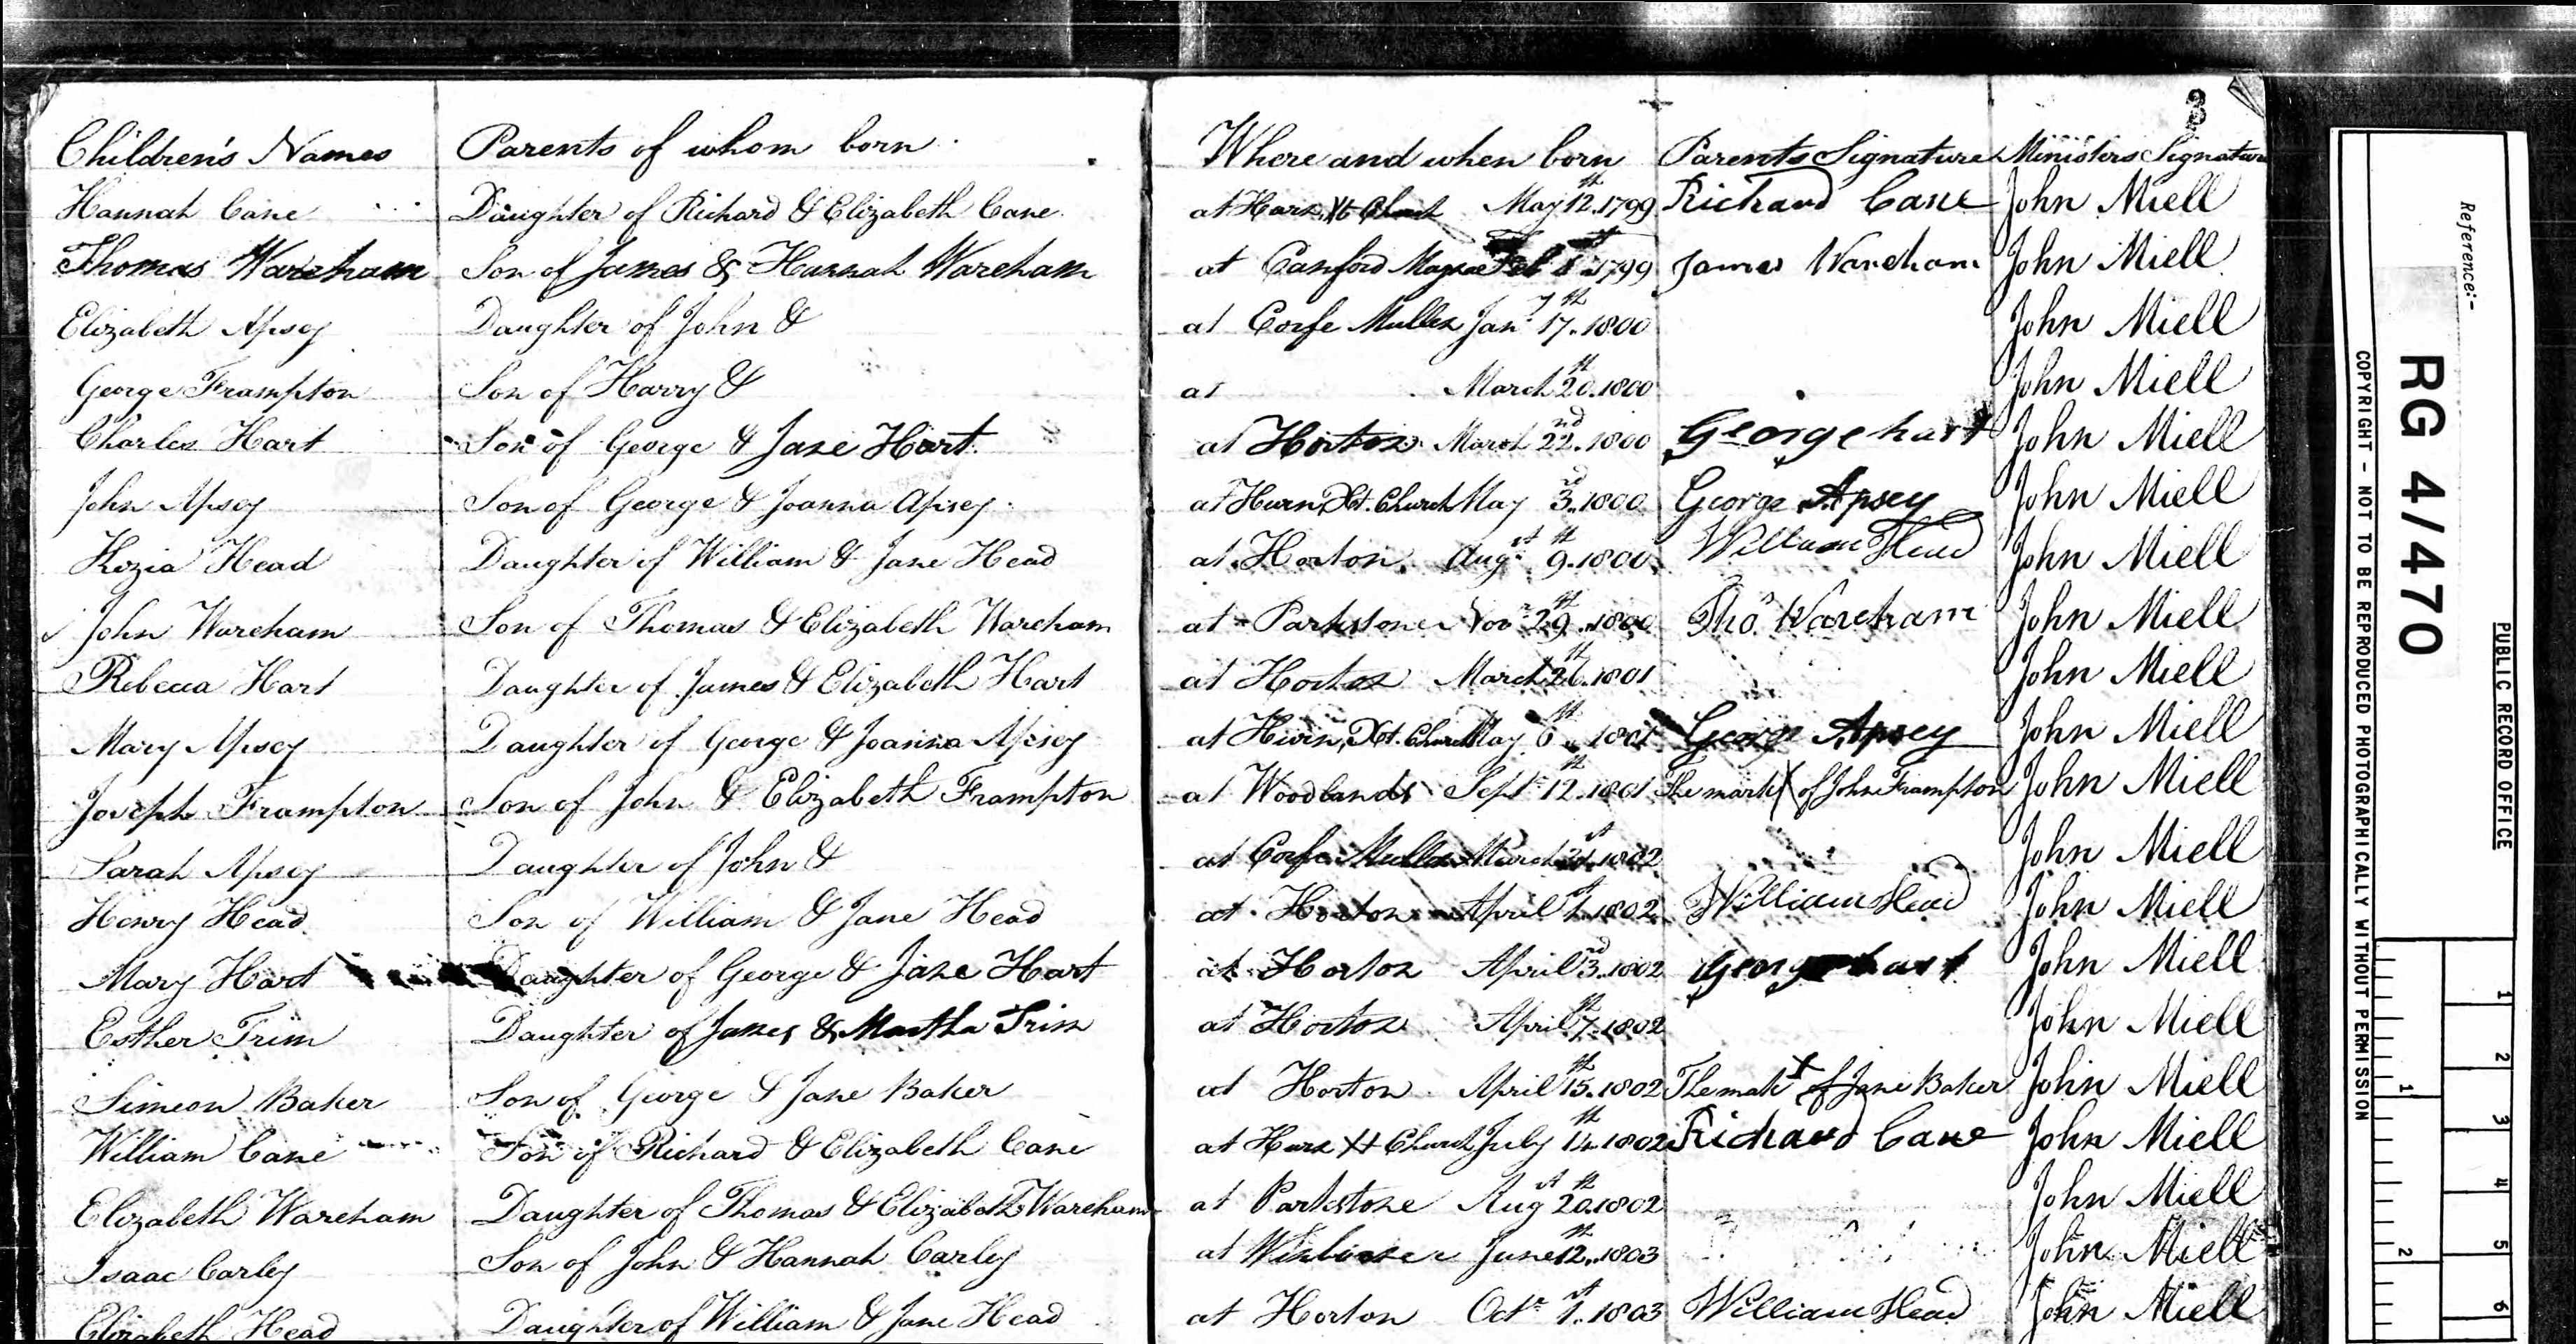 3
Children's Names Parents of whom born Where and when born Parents Signature Ministers Signature
Hannah Cane Daughter of Richard & Elizabeth Cane at Hurn, Xt Church May 12th. 1799 Richard Cane John Miell
Thomas Wareham Son of James & Hannah Wareham at Canford Magnae Feb 1799 James Wareham John Miell
Elizabeth Apsey Daughter of John & at Corfe Mullen Jany 17th. 1800 John Miell
George Frampton Son of Harry & at March 20th. 1800 John Miell
Charles Hart Son of George & Jane Hart at Horton March 22nd. 1800 George hart John Miell
John Apsey Son of George & Joanna Apsey at Hurn, Xt. Church May 3rd. 1800 George Apsey John Miell
Kezia Head Daughter of William & Jane Head at Horton Augst 9th. 1800 William Head John Miell
John Wareham Son of Thomas & Elizabeth Wareham at Parkstone Novr 29th. 1800 Thos Wareham John Miell
Rebecca Hart Daughter of James & Elizabeth Hart at Horton March 26th. 1801 John Miell
Mary Apsey Daughter of George & Joanna Apsey at Hurn, Xt. Church May 6th. 1801 George Apsey John Miell
Joseph Frampton Son of John & Elizabeth Frampton at Woodlands Septr 12th. 1801 The mark X of John Frampton John Miell
Sarah Apsey Daughter of John & at Corfe Mullen March 1802 John Miell
Henry Head Son of William & Jane Head at Horton April 1st. 1802 William Head John Miell
Mary Hart Daughter of George & Jane Hart at Horton April 3rd. 1802 George hart John Miell
Esther Trim Daughter of James & Martha Trim at Horton April 7th. 1802 John Miell
Simeon Baker Son of George & Jane Baker at Horton April 15th. 1802 The mark X of Jane Baker John Miell
William Cane Son of Richard & Elizabeth Cane at Hurn Xt Church July 14th. 1802 Richard Cane John Miell
Elizabeth Wareham Daughter of Thomas & Elizabeth Wareham at Parkstone Augst 20th. 1802 John Miell
Isaac Carley Son of John & Hannah Carley at Winborne June 12th. 1803 John Miell
Elizabeth Head Daughter of William & Jane Head at Horton Octr 1st. 1803 William Head John Miell
Reference:-
RG 4/470
PUBLIC RECORD OFFICE
COPYRIGHT - NOT TO BE REPRODUCED PHOTOGRAPHICALLY WITHOUT PERMISSION
1 2 3 4 5 6
1 2